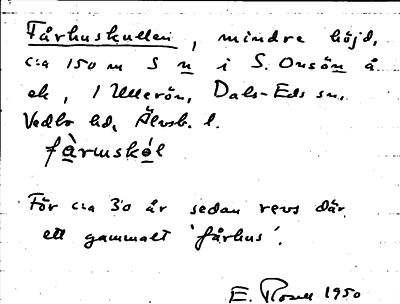 Fårhuskullen, mindre höjd,
c:a 150 m S n i S. Onsön å
ek, 1 Ulerön, Dals-Eds sn,
Vedbo hd, Älvsb. l.
fårmskól
För c:a 30 år sedan revs där
ett gammalt 'fårhus'.
E. Rosell 1950